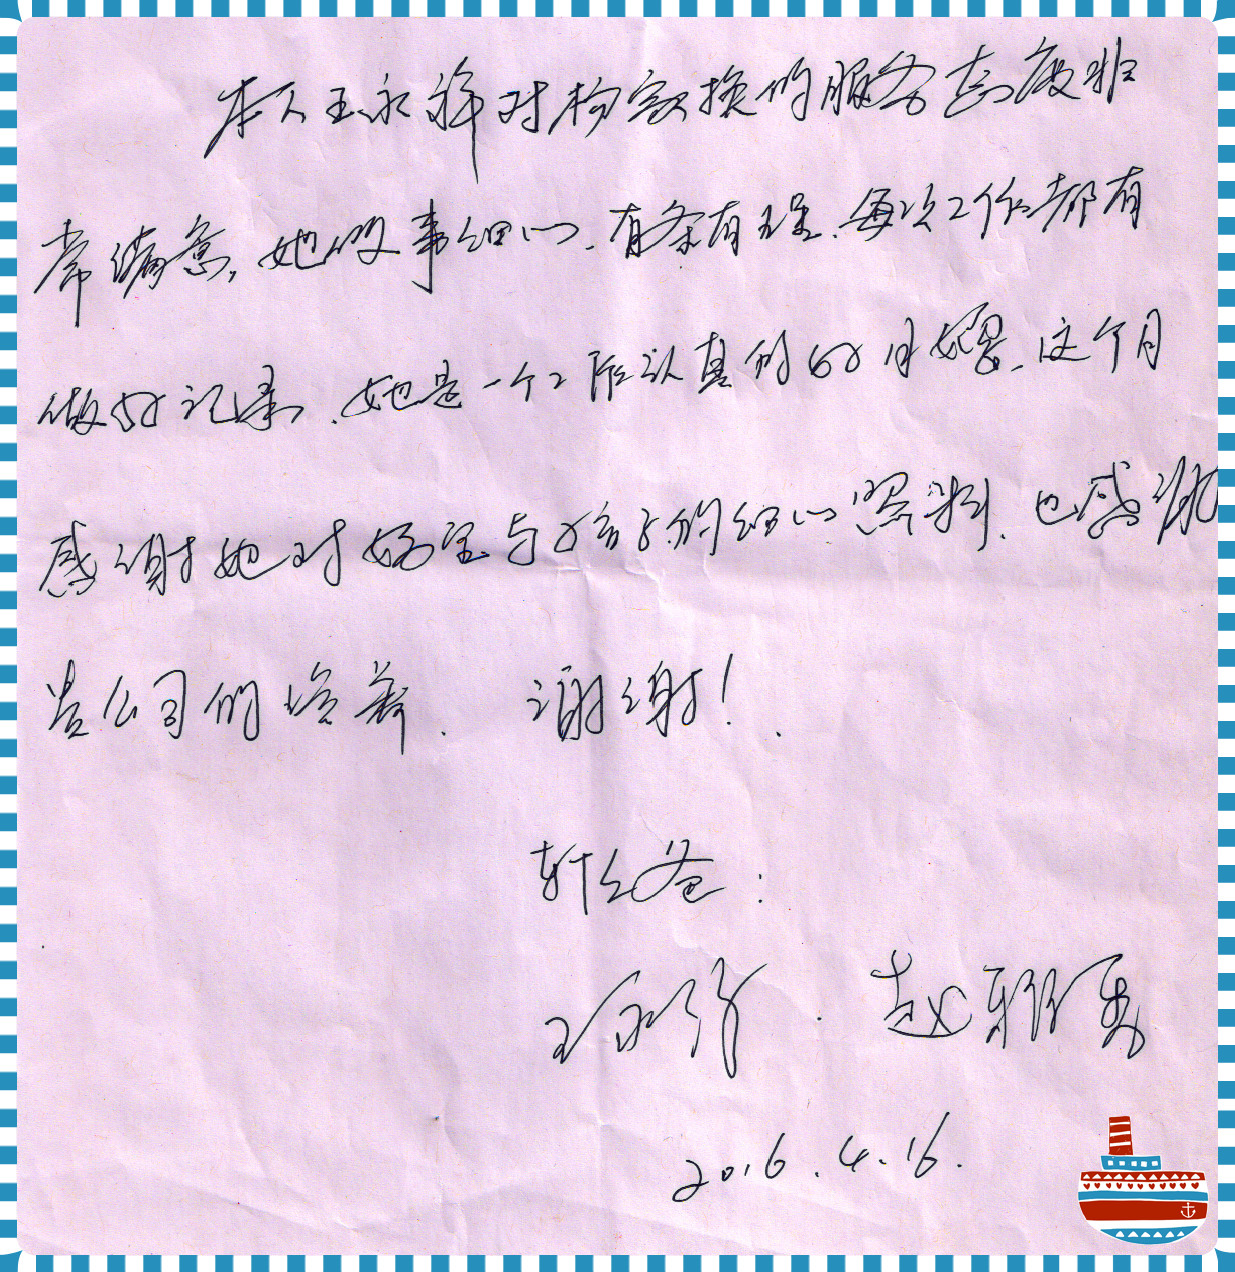 本人王永祥对杨家换的服务态度非
常满意,她做事细心、有条有理、每次工作都有
做好记录、她是一个工作认真的好月嫂、这个月
感谢她对妈宝与孩子的细心照料、也感谢
贵公司的培养. 谢谢!
轩轩爸:
王永祥. 赵雅勇
2016.4.16.